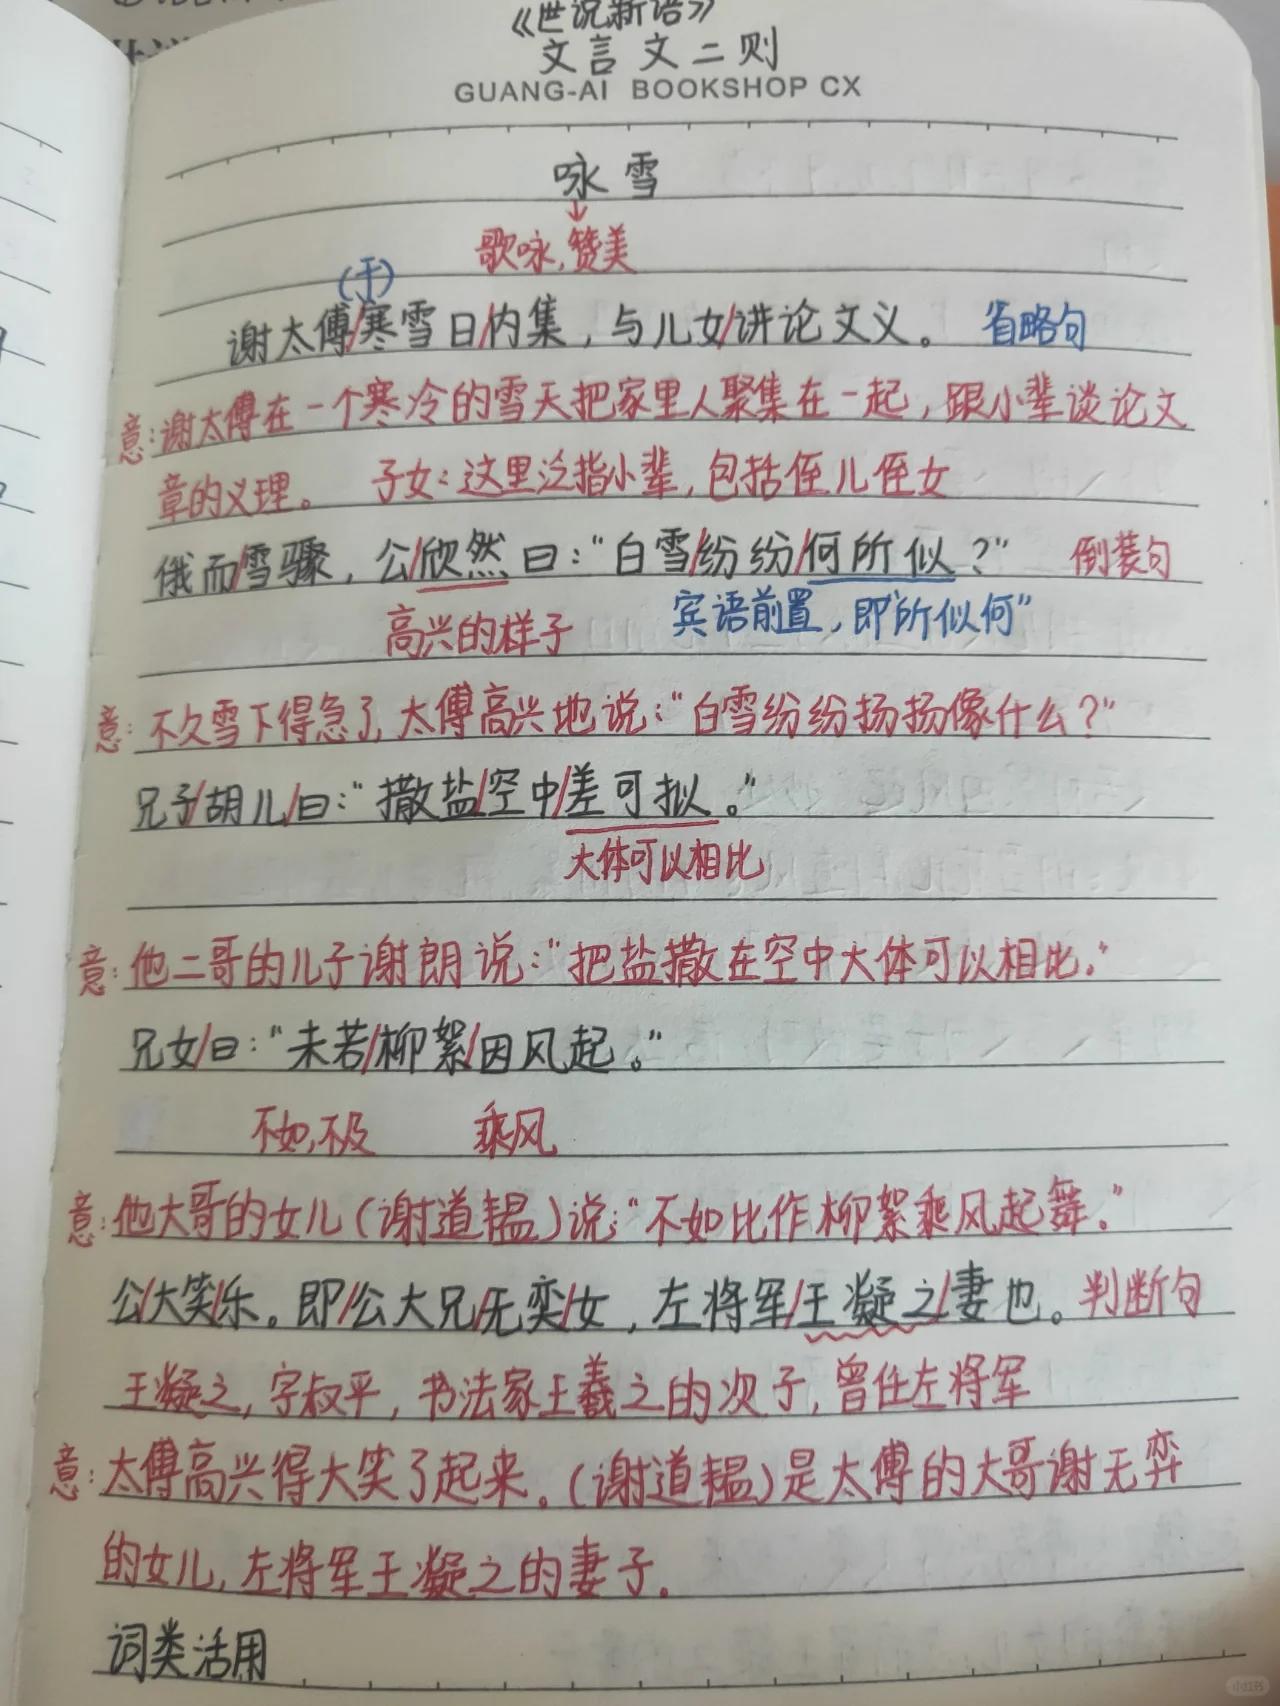 《世说新语》
文言文二则
GUANG-AI BOOKSHOP CX
咏雪
歌咏,赞美
(于)
谢太傅/寒雪日/内集,与儿女/讲论文义。 省略句
意:谢太傅在一个寒冷的雪天把家里人聚集在一起,跟小辈谈论文
章的义理。 子女:这里泛指小辈,包括侄儿侄女
俄而/雪骤,公/欣然曰:“白雪/纷纷/何所似?” 倒装句
高兴的样子 宾语前置,即“所似何”
意:不久雪下得急了,太傅高兴地说:“白雪纷纷扬扬像什么?”
兄子/胡儿/曰:“撒盐/空中/差可拟。”
大体可以相比
意:他二哥的儿子谢朗说:“把盐撒在空中大体可以相比。”
兄女/曰:“未若/柳絮/因风起。”
不如,不及 乘风
意:他大哥的女儿(谢道韫)说:“不如比作柳絮乘风起舞。”
公/大笑/乐。即/公大兄/无奕/女,左将军/王凝之/妻也。判断句
王凝之,字叔平,书法家王羲之的次子,曾任左将军
意:太傅高兴得大笑了起来。(谢道韫)是太傅的大哥谢无弈
的女儿,左将军王凝之的妻子。
词类活用
小红书